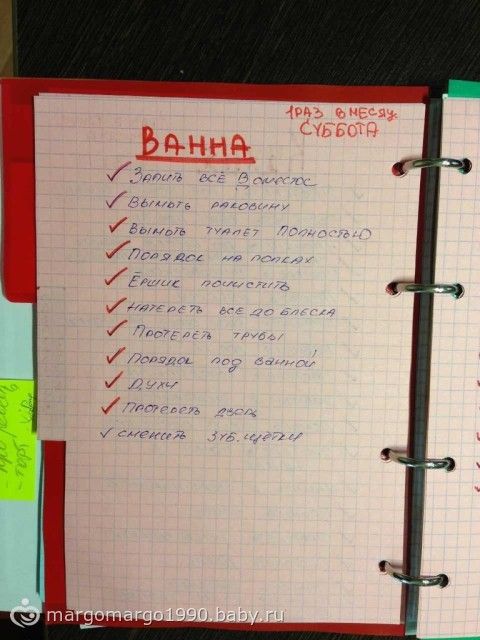 1 РАЗ В МЕСЯЦ
СУББОТА
ВАННА
✓ ЗАЛИТЬ ВСЁ В ДОМЕСТОС
✓ ВЫМЫТЬ РАКОВИНУ
✓ ВЫМЫТЬ ТУАЛЕТ ПОЛНОСТЬЮ
✓ ПОРЯДОК НА ПОЛКАХ
✓ ЁРШИК ПОЧИСТИТЬ
✓ НАТЕРЕТЬ ВСЕ ДО БЛЕСКА
✓ ПРОТЕРЕТЬ ТРУБЫ
✓ ПОРЯДОК ПОД ВАННОЙ
✓ ДУХИ
✓ ПРОТЕРЕТЬ ДВЕРЬ
✓ СМЕНИТЬ ЗУБ. ЩЕТКИ
margomargo1990.baby.ru